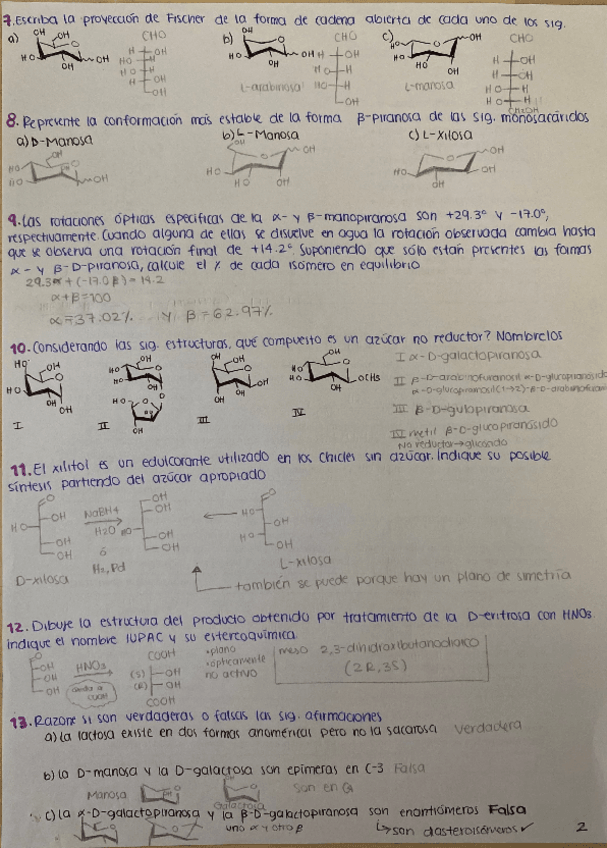 7. Escriba la proyección de Fischer de la forma de cadena abierta de cada uno de los sig.
a) b) c)
CHO CHO CHO
L-arabinosa L-manosa
8. Represente la conformación más estable de la forma β-piranosa de las sig. monosacáridos
a) D-Manosa b) L-Manosa c) L-Xilosa
9. Las rotaciones ópticas específicas de la α- y β-manopiranosa son +29.3° y -17.0°,
respectivamente. Cuando alguna de ellas se disuelve en agua la rotación observada cambia hasta
que se observa una rotación final de +14.2°. Suponiendo que sólo están presentes las formas
α- y β-D-piranosa, calcule el % de cada isómero en equilibrio
29.3α + (-17.0β) = 14.2
α + β = 100
α = 37.02% y β = 62.97%
10. Considerando las sig. estructuras, qué compuesto es un azúcar no reductor? Nombrelos
I α-D-galactopiranosa
II β-D-arabinofuranosil α-D-glucopiranosido
III β-D-gulopiranosa
IV metil β-D-glucopiranósido
No reductor→glicosido
I II III IV
11. El xilitol es un edulcorante utilizado en los chicles sin azúcar. Indique su posible
síntesis partiendo del azúcar apropiado
NaBH4
H2O
ó
H2, Pd
D-xilosa L-xilosa
también se puede porque hay un plano de simetría
12. Dibuje la estructura del producto obtenido por tratamiento de la D-eritrosa con HNO3.
indique el nombre IUPAC y su estereoquímica.
HNO3 COOH •plano meso 2,3-dihidroxibutanodioico
(S) OH •ópticamente (2R,3S)
(R) OH no activo
COOH
13. Razone si son verdaderas o falsas las sig. afirmaciones
a) la lactosa existe en dos formas anoméricas pero no la sacarosa Verdadera
b) la D-manosa y la D-galactosa son epímeras en C-3 Falsa
Manosa Galactosa son en
c) la α-D-galactopiranosa y la β-D-galactopiranosa son enantiómeros Falsa
uno α y otro β ↳son diasteroisómeros ✓
2